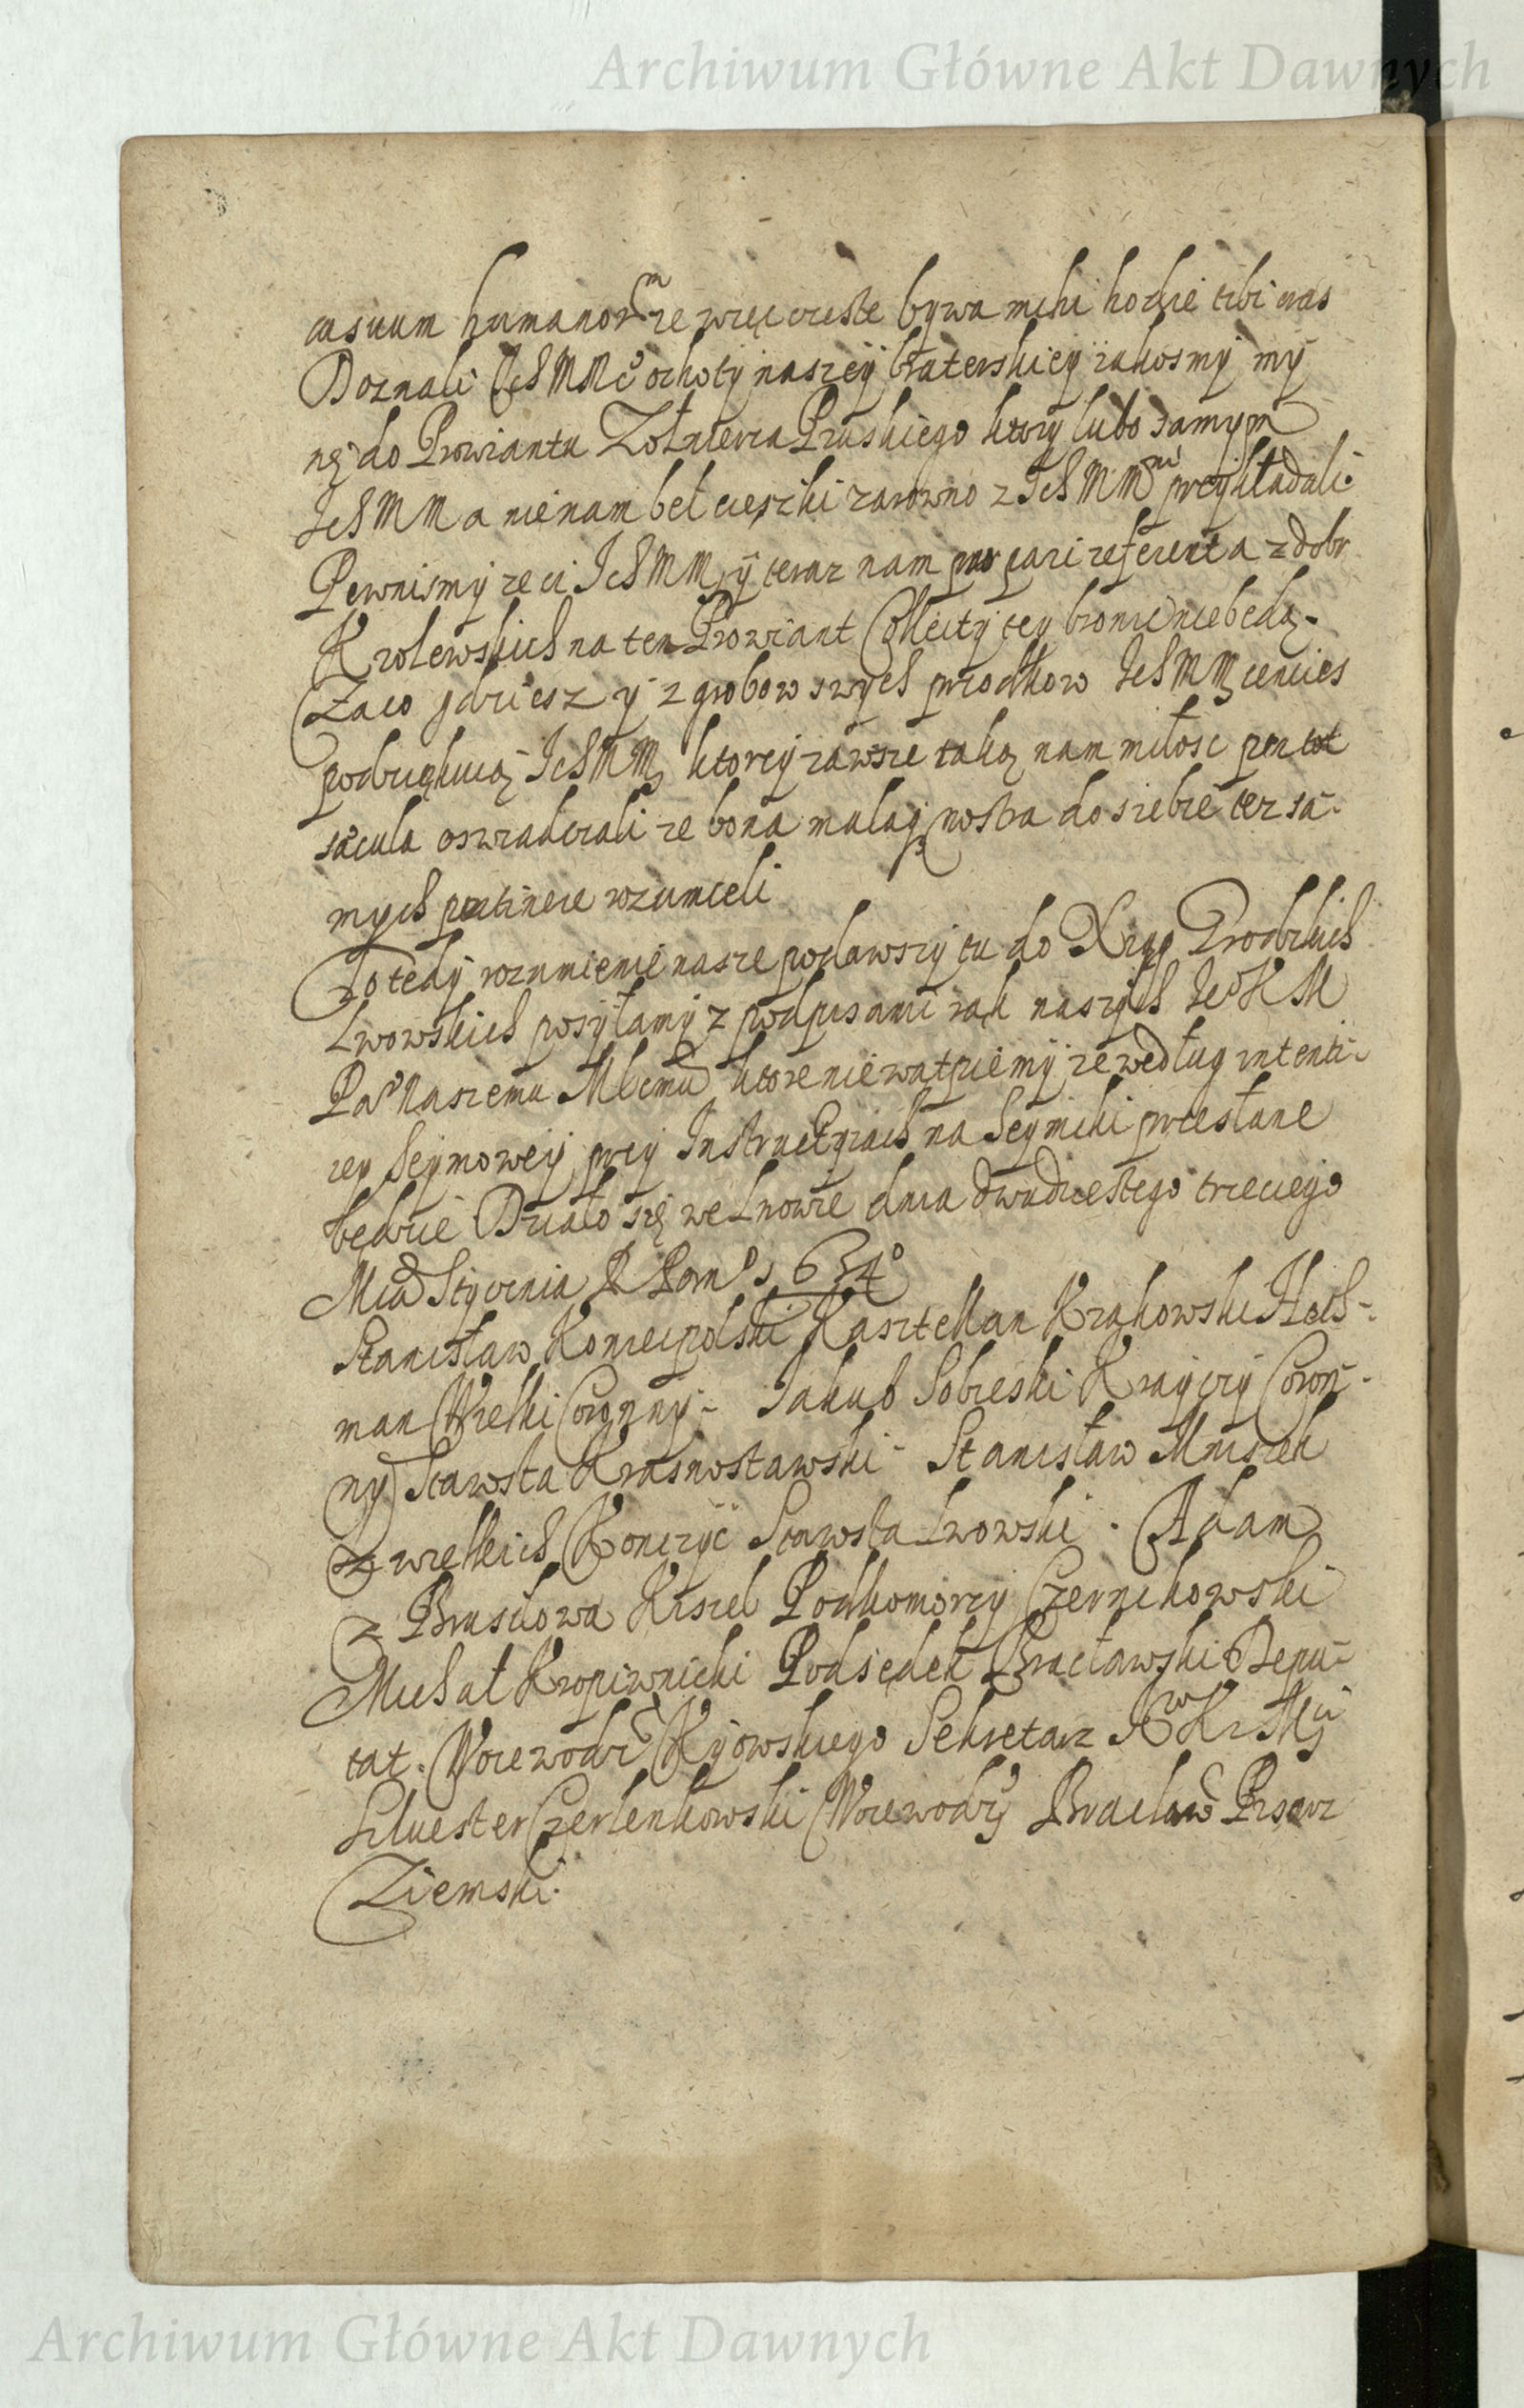 Archiwum Główne Akt Dawnych
casuum humanorum ze więc czeste bywa mihi hodie tibi cras
Doznali IchMMć ochoty naszey braterskiey iakosmy my
się do Prowiantu Zołnierza Pruskiego ktory lubo samym
IchMM a nie nam beł cięszki zarowno z IchMMmi przykładali.
Pewnismy ze ci IchMM y teraz nam par pari referent a z dobr
Krolewskich na ten Prowiant Collecty tey bronic nie będą.
Za co gdzies z y z grobow swych przodkow IchMM cenies
podziękuią IchMM ktorzy zawsze taką nam miłosc per tot
sæcula oswiadczali ze bona malaq nostra do siebie tez sa-
mych pertinere rozumieli
To tedy rozumienie nasze podawszy tu do Xiąg Grodzkich
Lwowskich posyłamy z podpisami rąk naszych IeoKM
Pa Naszemu Młemu ktore nie wątpiemy ze według intenti-
iey Seymowey przy Instructiach na Seymiki przesłane
będzie Działo się we Lwowie dnia dwudziestego trzeciego
Mca Stycznia R Pan 1634o
Stanisław Koniecpolski Kasztellan Krakowski Het-
man Wielki Coronny- Iakub Sobieski Krayczy Coron-
ny Starosta Krasnostawski- Stanisław Mniszek
z wielkich Konczyc Starosta Lwowski. Adam
z Brusiłowa Kisiel Podkomorzy Czernihowski
Michał Kropiwnicki Podsędek Bracławski Depu-
tat. Woiewodz Kyowskiego Sekretarz
Siluester Czerlenkowski Woiewody Bracław Pisarz
Ziemski.
Archiwum Główne Akt Dawnych